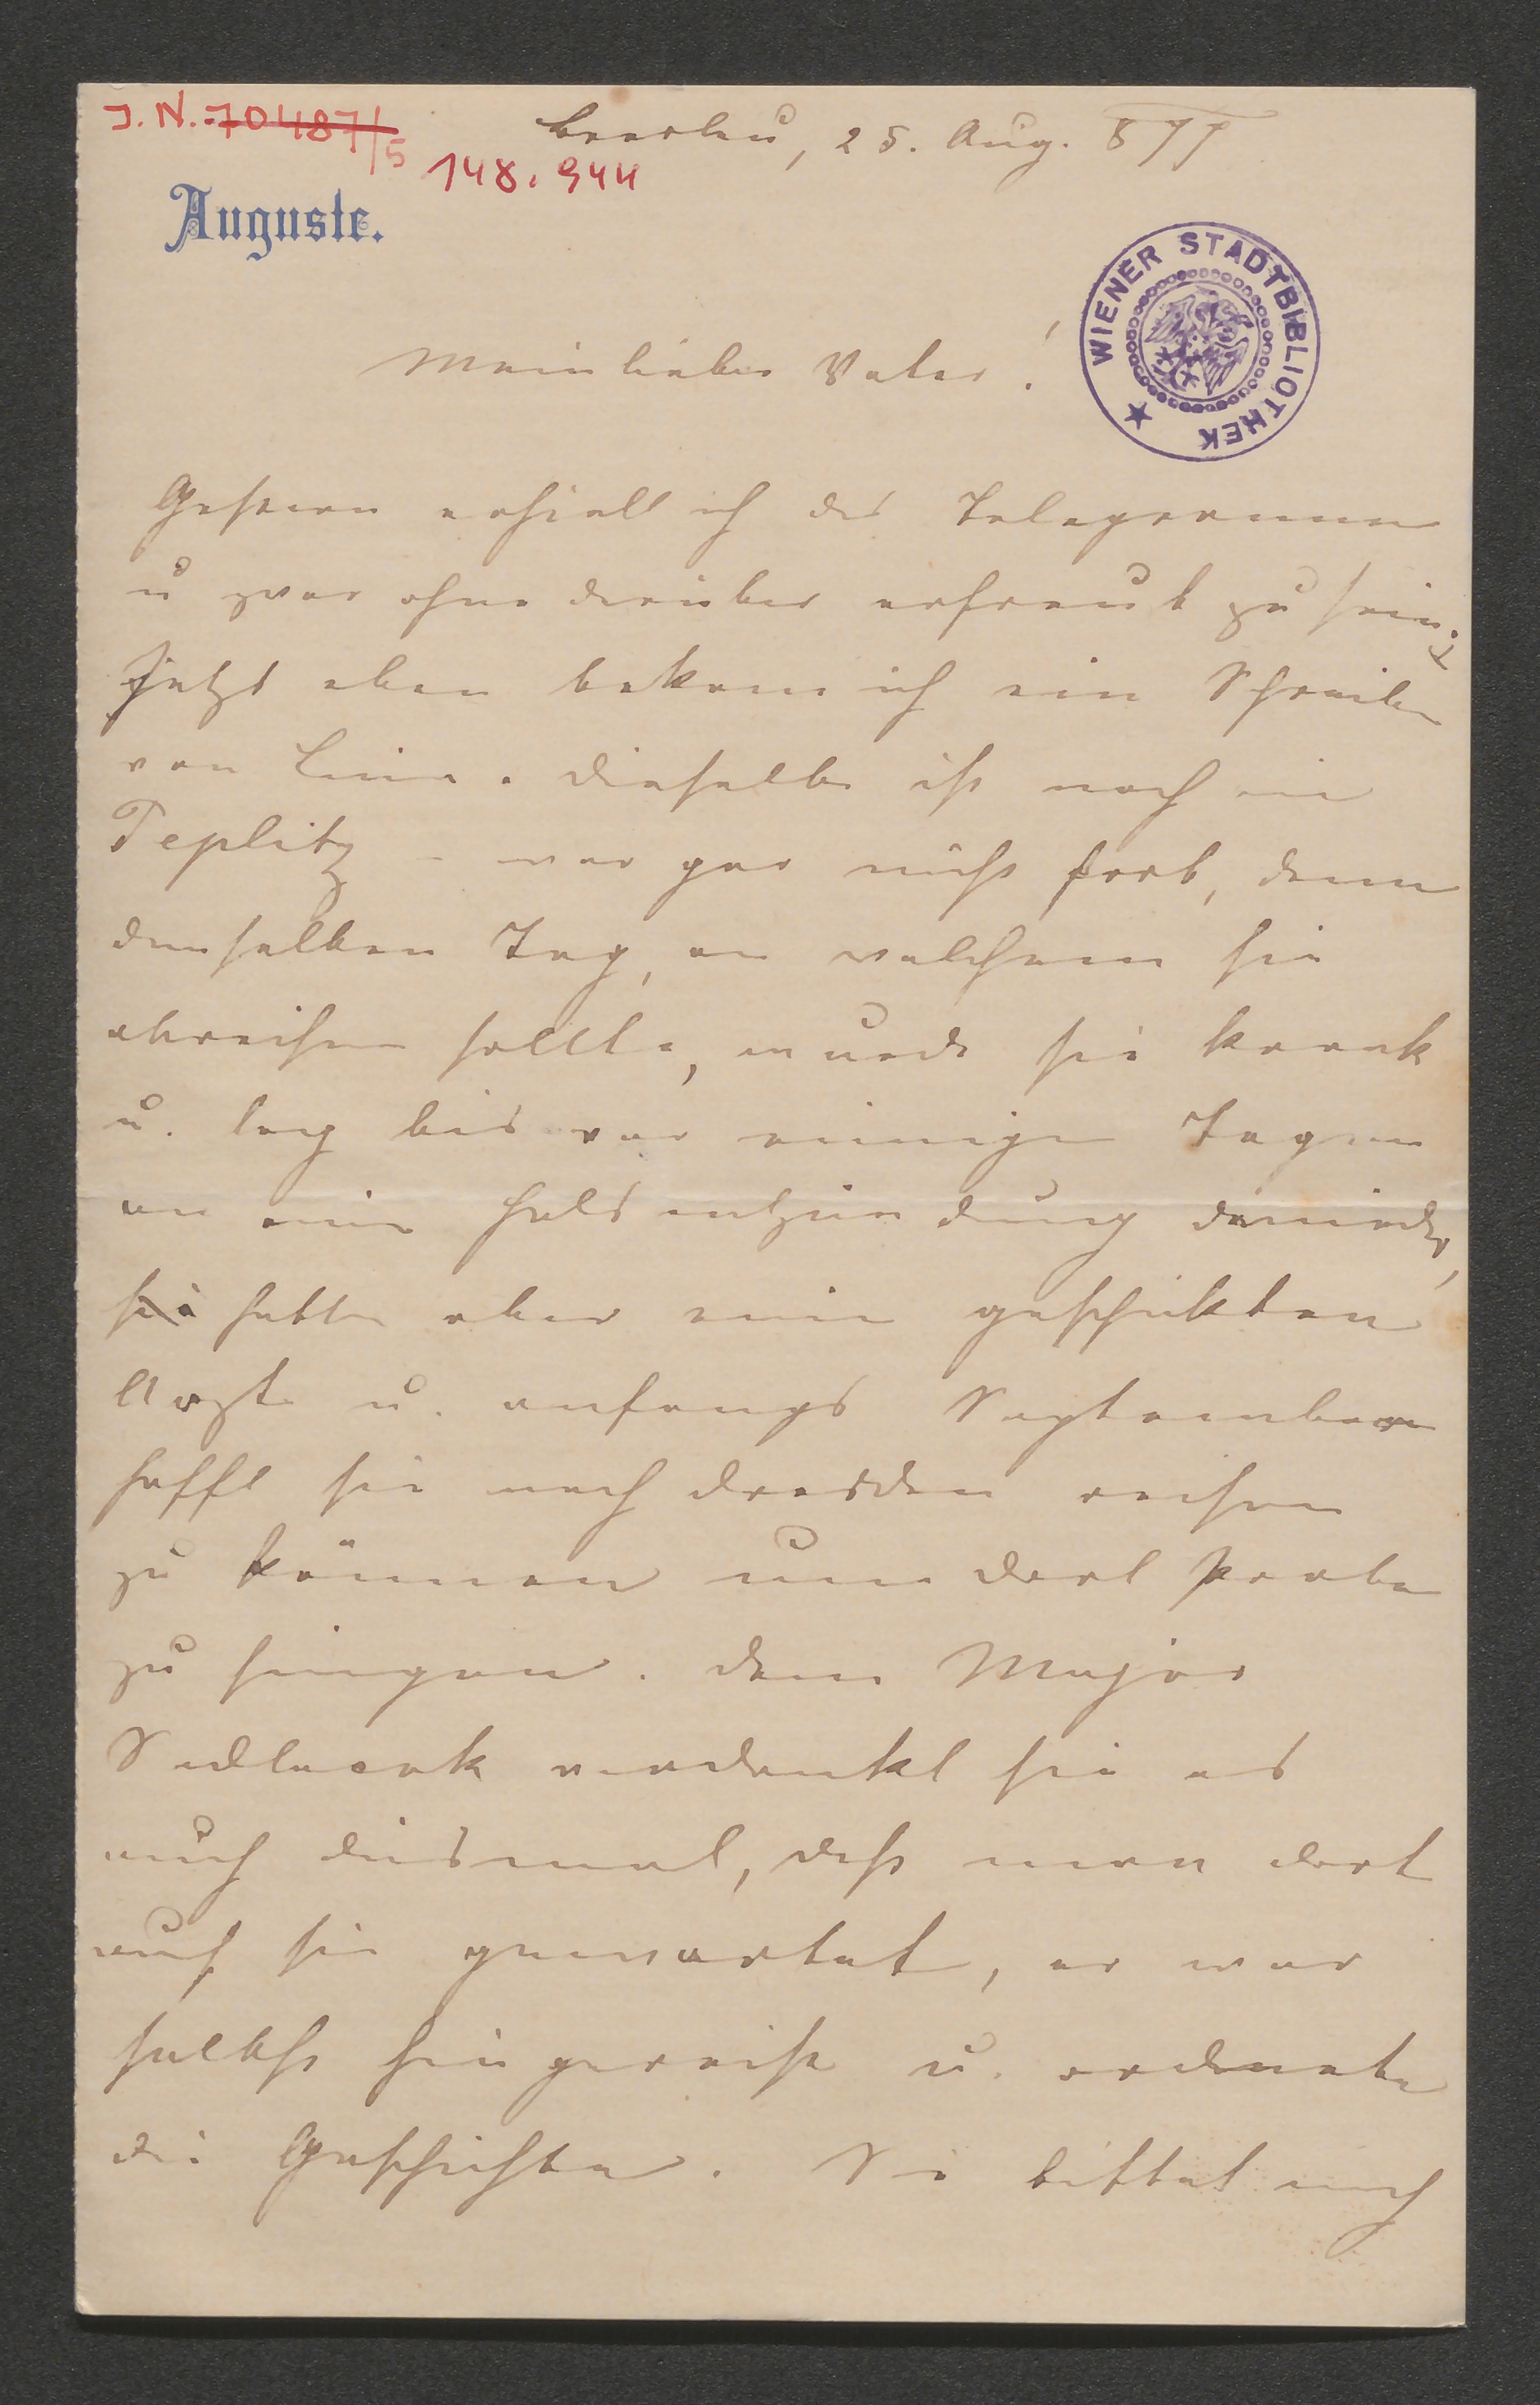 J. N. 70487/5
Breslau, 25. Aug. 877
148.944
Auguste.
WIENER STADTBIBLIOTHEK
Mein lieber Vater!
Gestern erhielt ich das Telegramm
u zwar ohne darüber erfreut zu sein;
Jetzt eben bekam ich ein Schreiben
von Lina. dieselbe ist noch in
Teplitz – war gar nicht fort, denn
denselben Tag, an welchem sie
abreisen sollte, wurde sie krank
u. lag bis vor einigen Tagen
an einer Halsentzündung danieder,
sie hatte aber einen geschikten
Arzt u. anfangs September
hofft sie nach Dresden reisen
zu können um dort probe
zu singen. dem Major
Sedlaczek verdankt sie es
auch diesmal, daß man dort
auf sie gewartet, er war
selbst hingereist u. ordnete
die Geschichte. Sie bittet mich